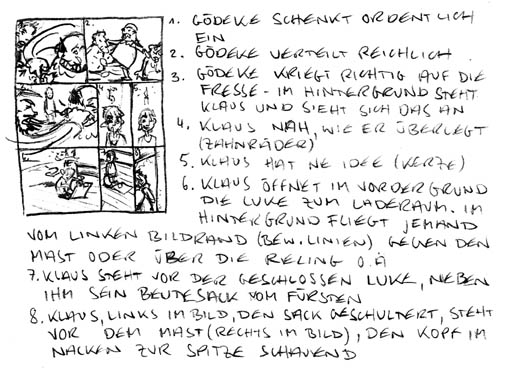 1. GÖDEKE SCHENKT ORDENTLICH
EIN
2. GÖDEKE VERTEILT REICHLICH.
3. GÖDEKE KRIEGT RICHTIG AUF DIE
FRESSE - IM HINTERGRUND STEHT
KLAUS UND SIEHT SICH DAS AN
4. KLAUS NAH, WIE ER ÜBERLEGT
(ZAHNRÄDER)
5. KLAUS HAT NE IDEE (KERZE)
6. KLAUS ÖFFNET IM VORDERGRUND
DIE LUKE ZUM LADERAUM. IM
HINTERGRUND FLIEGT JEMAND
VOM LINKEN BILDRAND (BEW.LINIEN) GEGEN DEN
MAST ODER ÜBER DIE RELING O.Ä
7. KLAUS STEHT VOR DER GESCHLOSSEN LUKE, NEBEN
IHM SEIN BEUTESACK VOM FÜRSTEN
8. KLAUS, LINKS IM BILD, DEN SACK GESCHULTERT, STEHT
VOR DEM MAST (RECHTS IM BILD), DEN KOPF IM
NACKEN ZUR SPITZE SCHAUEND